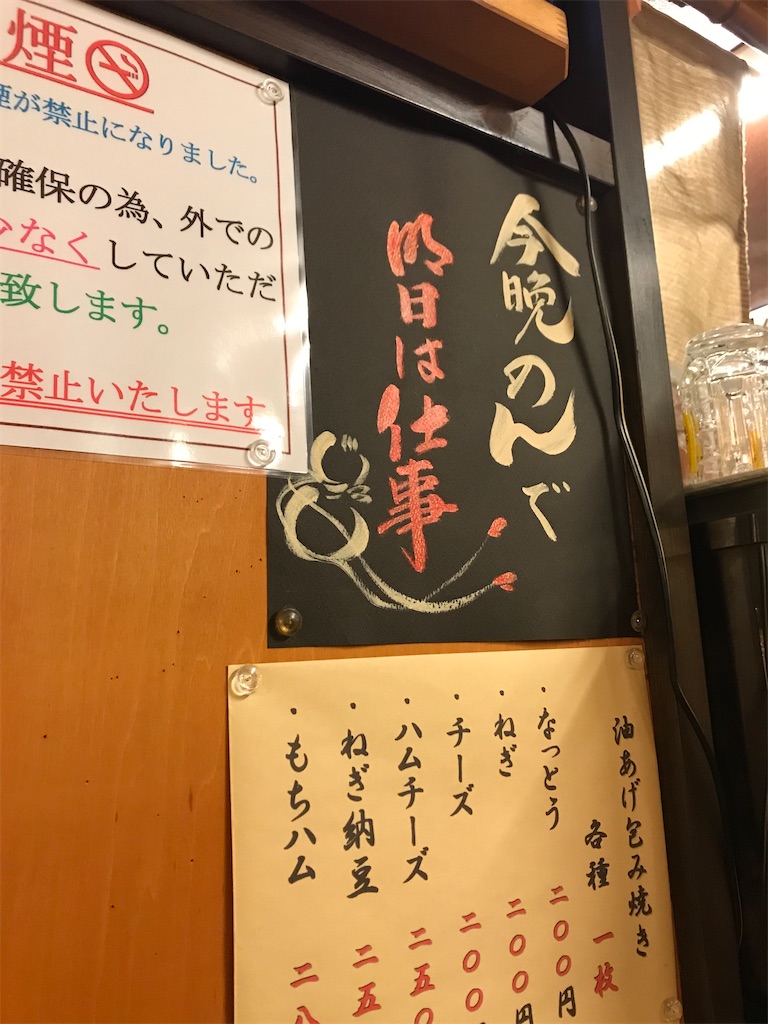 煙
煙が禁止になりました。
確保の為、外での
少なくしていただ
致します。
禁止いたします
今晩のんで
明日は仕事
油あげ包み焼き
各種 一枚
・なっとう 二〇〇円
・ねぎ 二〇〇円
・チーズ 二〇〇
・ハムチーズ 二五〇
・ねぎ納豆 二五
・もちハム 二八